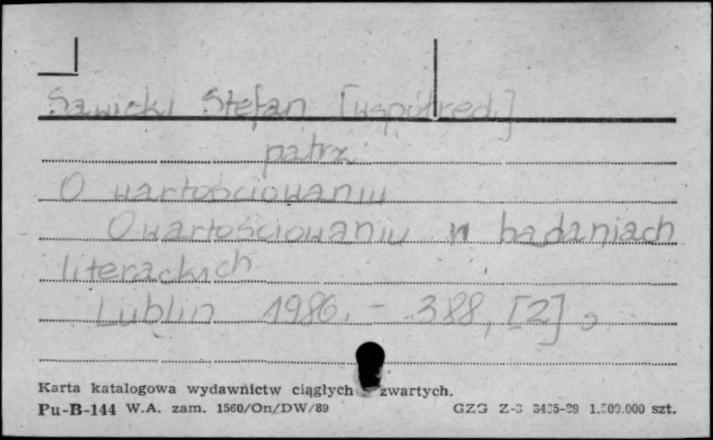 Sawicki Stefan [współred.]
patrz:
O wartościowaniu
O wartościowaniu w badaniach
literackich
Lublin 1986. - 388, [2] s
Karta katalogowa wydawnictw ciągłych zwartych.
Pu-B-144 W.A. zam. 1560/On/DW/89 GZG Z-3 1.500.000 szt.